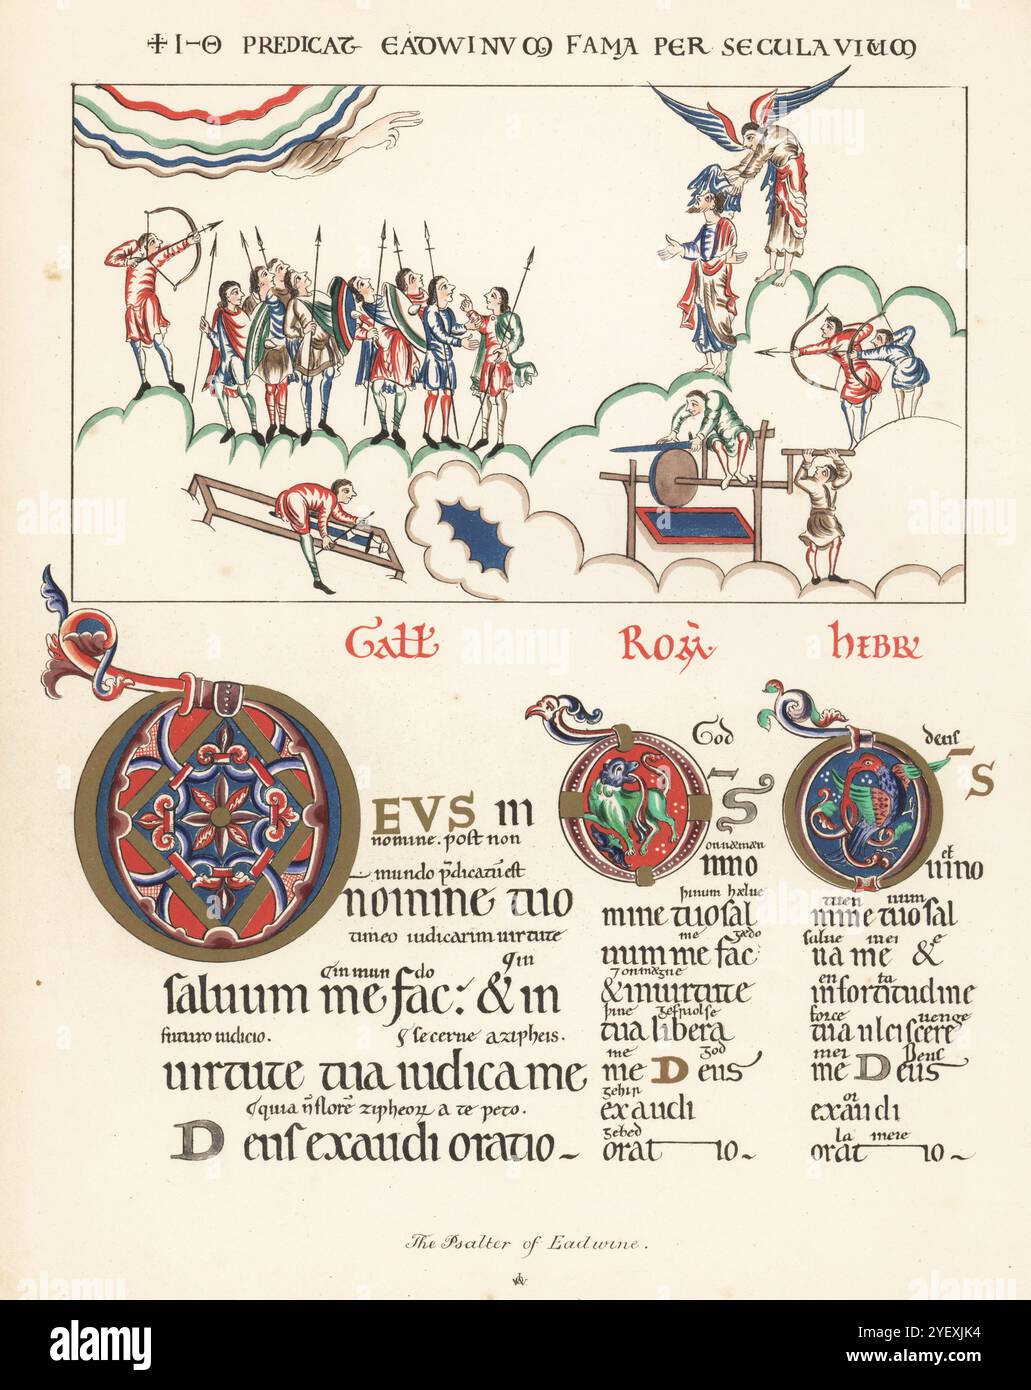 ✠ I-Θ PREDICAT EADWINVM FAMA PER SECULA VIVUM
Gall Rom Hebr
God
deus
EVS IN
S
S
nomine. post non
on naman
et
nno
nino
mundo p̄dicatū est
þinum hælue
tuen num
nomine tuo
mine tuo sal
mine tuo sal
timeo iudicarim uirtute
me gedo
salue mei e
num me fac
ua me &
qin mun do qin
saluum me fac: & in
7 on mægne
en ta
& in uirtute
in fortitudine
futuro iudicio. secerne a zipheis.
þine gefuolse
force uenge
tua libera
tua ulciscere
uirtute tua iudica me
me god
mei Deus
me Deus
me Deus
quia n̄ florē zipheoꝝ a te peto.
gehir
oi
exaudi
exaudi
Deus exaudi oratio-
gebed
la meie
orat io-
orat io~
The Psalter of Eadwine.
alamy
Image ID: 2YEXJK4
www.alamy.com